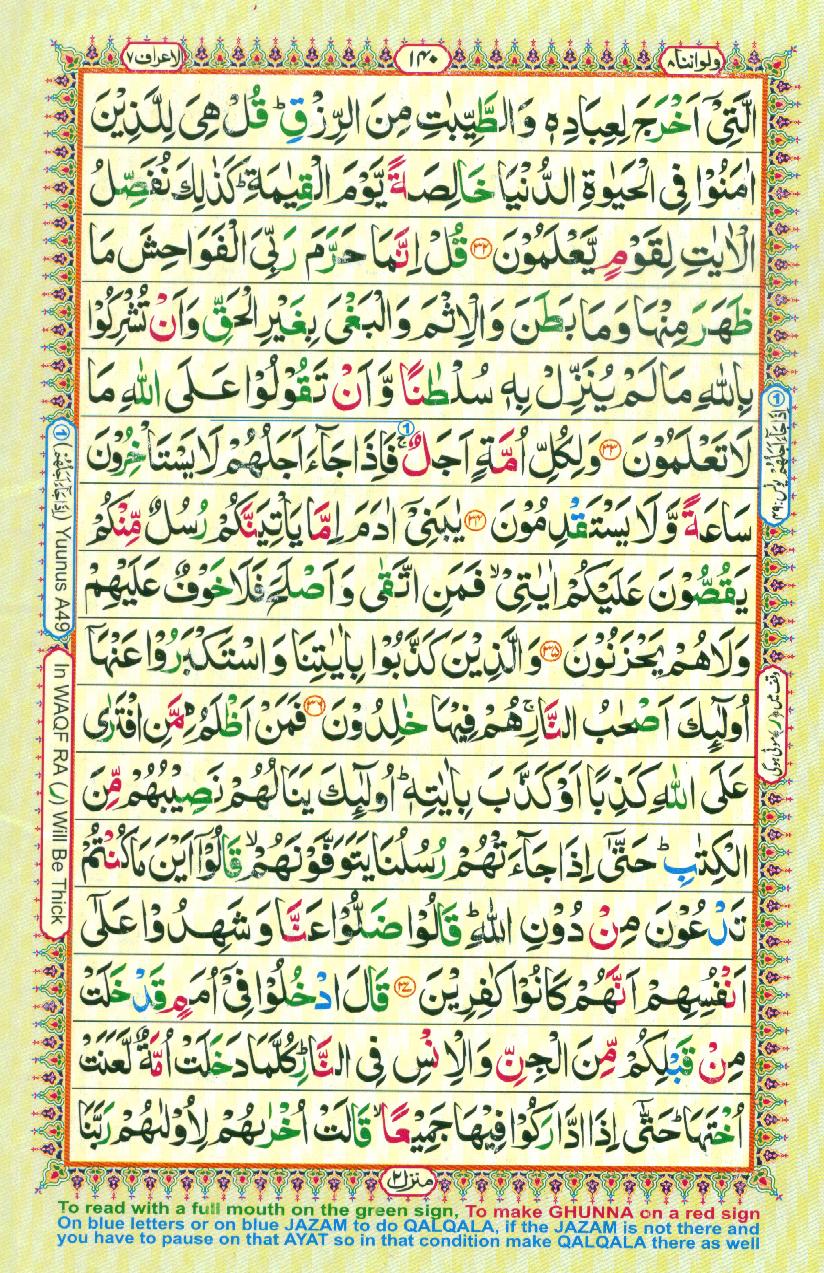 ولواننا۸
۱۴۰
الاعراف۷
الَّتِىْۤ اَخْرَجَ لِعِبَادِهٖ وَالطَّيِّبٰتِ مِنَ الرِّزْقِ ؕ قُلْ هِىَ لِلَّذِيْنَ
اٰمَنُوْا فِى الْحَيٰوةِ الدُّنْيَا خَالِصَةً يَّوْمَ الْقِيٰمَةِ ؕ كَذٰلِكَ نُفَصِّلُ
الْاٰيٰتِ لِقَوْمٍ يَّعْلَمُوْنَ ۳۲ قُلْ اِنَّمَا حَرَّمَ رَبِّىَ الْفَوَاحِشَ مَا
ظَهَرَ مِنْهَا وَمَا بَطَنَ وَالْاِثْمَ وَالْبَغْىَ بِغَيْرِ الْحَقِّ وَاَنْ تُشْرِكُوْا
بِاللّٰهِ مَا لَمْ يُنَزِّلْ بِهٖ سُلْطٰنًا وَّاَنْ تَقُوْلُوْا عَلَى اللّٰهِ مَا
لَا تَعْلَمُوْنَ ۳۳ وَلِكُلِّ اُمَّةٍ اَجَلٌ ۚ فَاِذَا جَآءَ اَجَلُهُمْ لَا يَسْتَاْخِرُوْنَ
سَاعَةً وَّلَا يَسْتَقْدِمُوْنَ ۳۴ يٰبَنِىْۤ اٰدَمَ اِمَّا يَاْتِيَنَّكُمْ رُسُلٌ مِّنْكُمْ
يَقُصُّوْنَ عَلَيْكُمْ اٰيٰتِىْ ۙ فَمَنِ اتَّقٰى وَاَصْلَحَ فَلَا خَوْفٌ عَلَيْهِمْ
وَلَا هُمْ يَحْزَنُوْنَ ۳۵ وَالَّذِيْنَ كَذَّبُوْا بِاٰيٰتِنَا وَاسْتَكْبَرُوْا عَنْهَاۤ
اُولٰٓئِكَ اَصْحٰبُ النَّارِ ۚ هُمْ فِيْهَا خٰلِدُوْنَ ۳۶ فَمَنْ اَظْلَمُ مِمَّنِ افْتَرٰى
عَلَى اللّٰهِ كَذِبًا اَوْ كَذَّبَ بِاٰيٰتِهٖ ؕ اُولٰٓئِكَ يَنَالُهُمْ نَصِيْبُهُمْ مِّنَ
الْكِتٰبِ ؕ حَتّٰٓى اِذَا جَآءَتْهُمْ رُسُلُنَا يَتَوَفَّوْنَهُمْ ۙ قَالُوْۤا اَيْنَ مَا كُنْتُمْ
تَدْعُوْنَ مِنْ دُوْنِ اللّٰهِ ؕ قَالُوْا ضَلُّوْا عَنَّا وَشَهِدُوْا عَلٰٓى
اَنْفُسِهِمْ اَنَّهُمْ كَانُوْا كٰفِرِيْنَ ۳۷ قَالَ ادْخُلُوْا فِىْۤ اُمَمٍ قَدْ خَلَتْ
مِنْ قَبْلِكُمْ مِّنَ الْجِنِّ وَالْاِنْسِ فِى النَّارِ ؕ كُلَّمَا دَخَلَتْ اُمَّةٌ لَّعَنَتْ
اُخْتَهَا ؕ حَتّٰٓى اِذَا ادَّارَكُوْا فِيْهَا جَمِيْعًا ۙ قَالَتْ اُخْرٰىهُمْ لِاُوْلٰىهُمْ رَبَّنَا
منزل۲
① اِذَا جَآءَ اَجَلُهُمْ یونس:۴۹
① (اِذَا جَآءَ اَجَلُهُمْ) Yuunus A49
In WAQF RA (ر) Will Be Thick
To read with a full mouth on the green sign, To make GHUNNA on a red sign
On blue letters or on blue JAZAM to do QALQALA, if the JAZAM is not there and
you have to pause on that AYAT so in that condition make QALQALA there as well